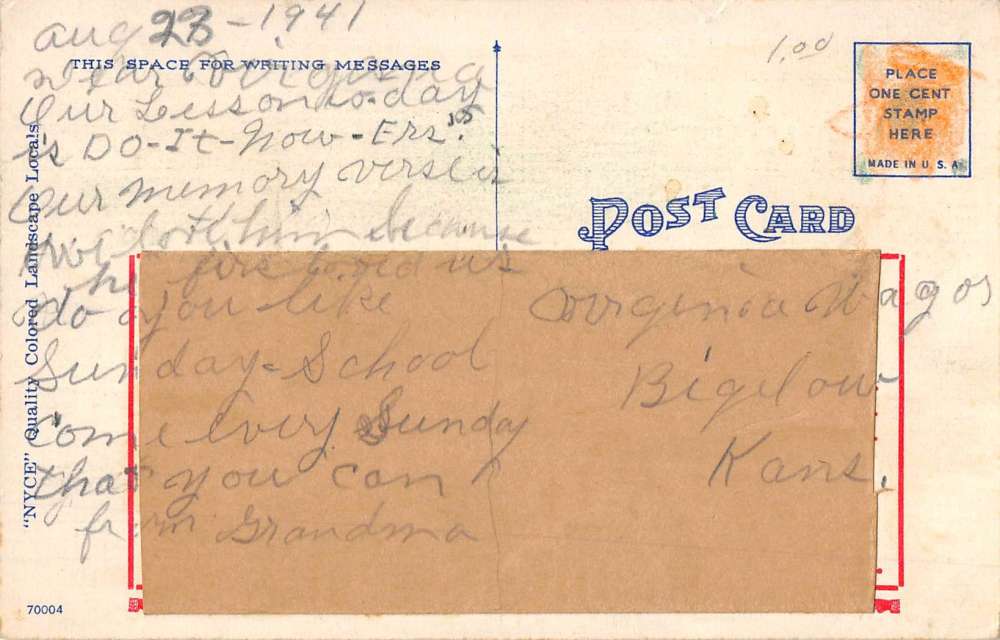 Aug 28 - 1941
THIS SPACE FOR WRITING MESSAGES
Dear Virginia
Our Lesson to-day
is DO-It-Now-Ers.
Our memory verse is
We love him because
he first loved us
do you like
Sunday-School
Come Every Sunday
that you can
from Grandma
"NYCE" Quality Colored Landscape Locals
70004
1.00
PLACE
ONE CENT
STAMP
HERE
MADE IN U. S. A.
POST CARD
Virginia Wagor
Bigelow
Kans.